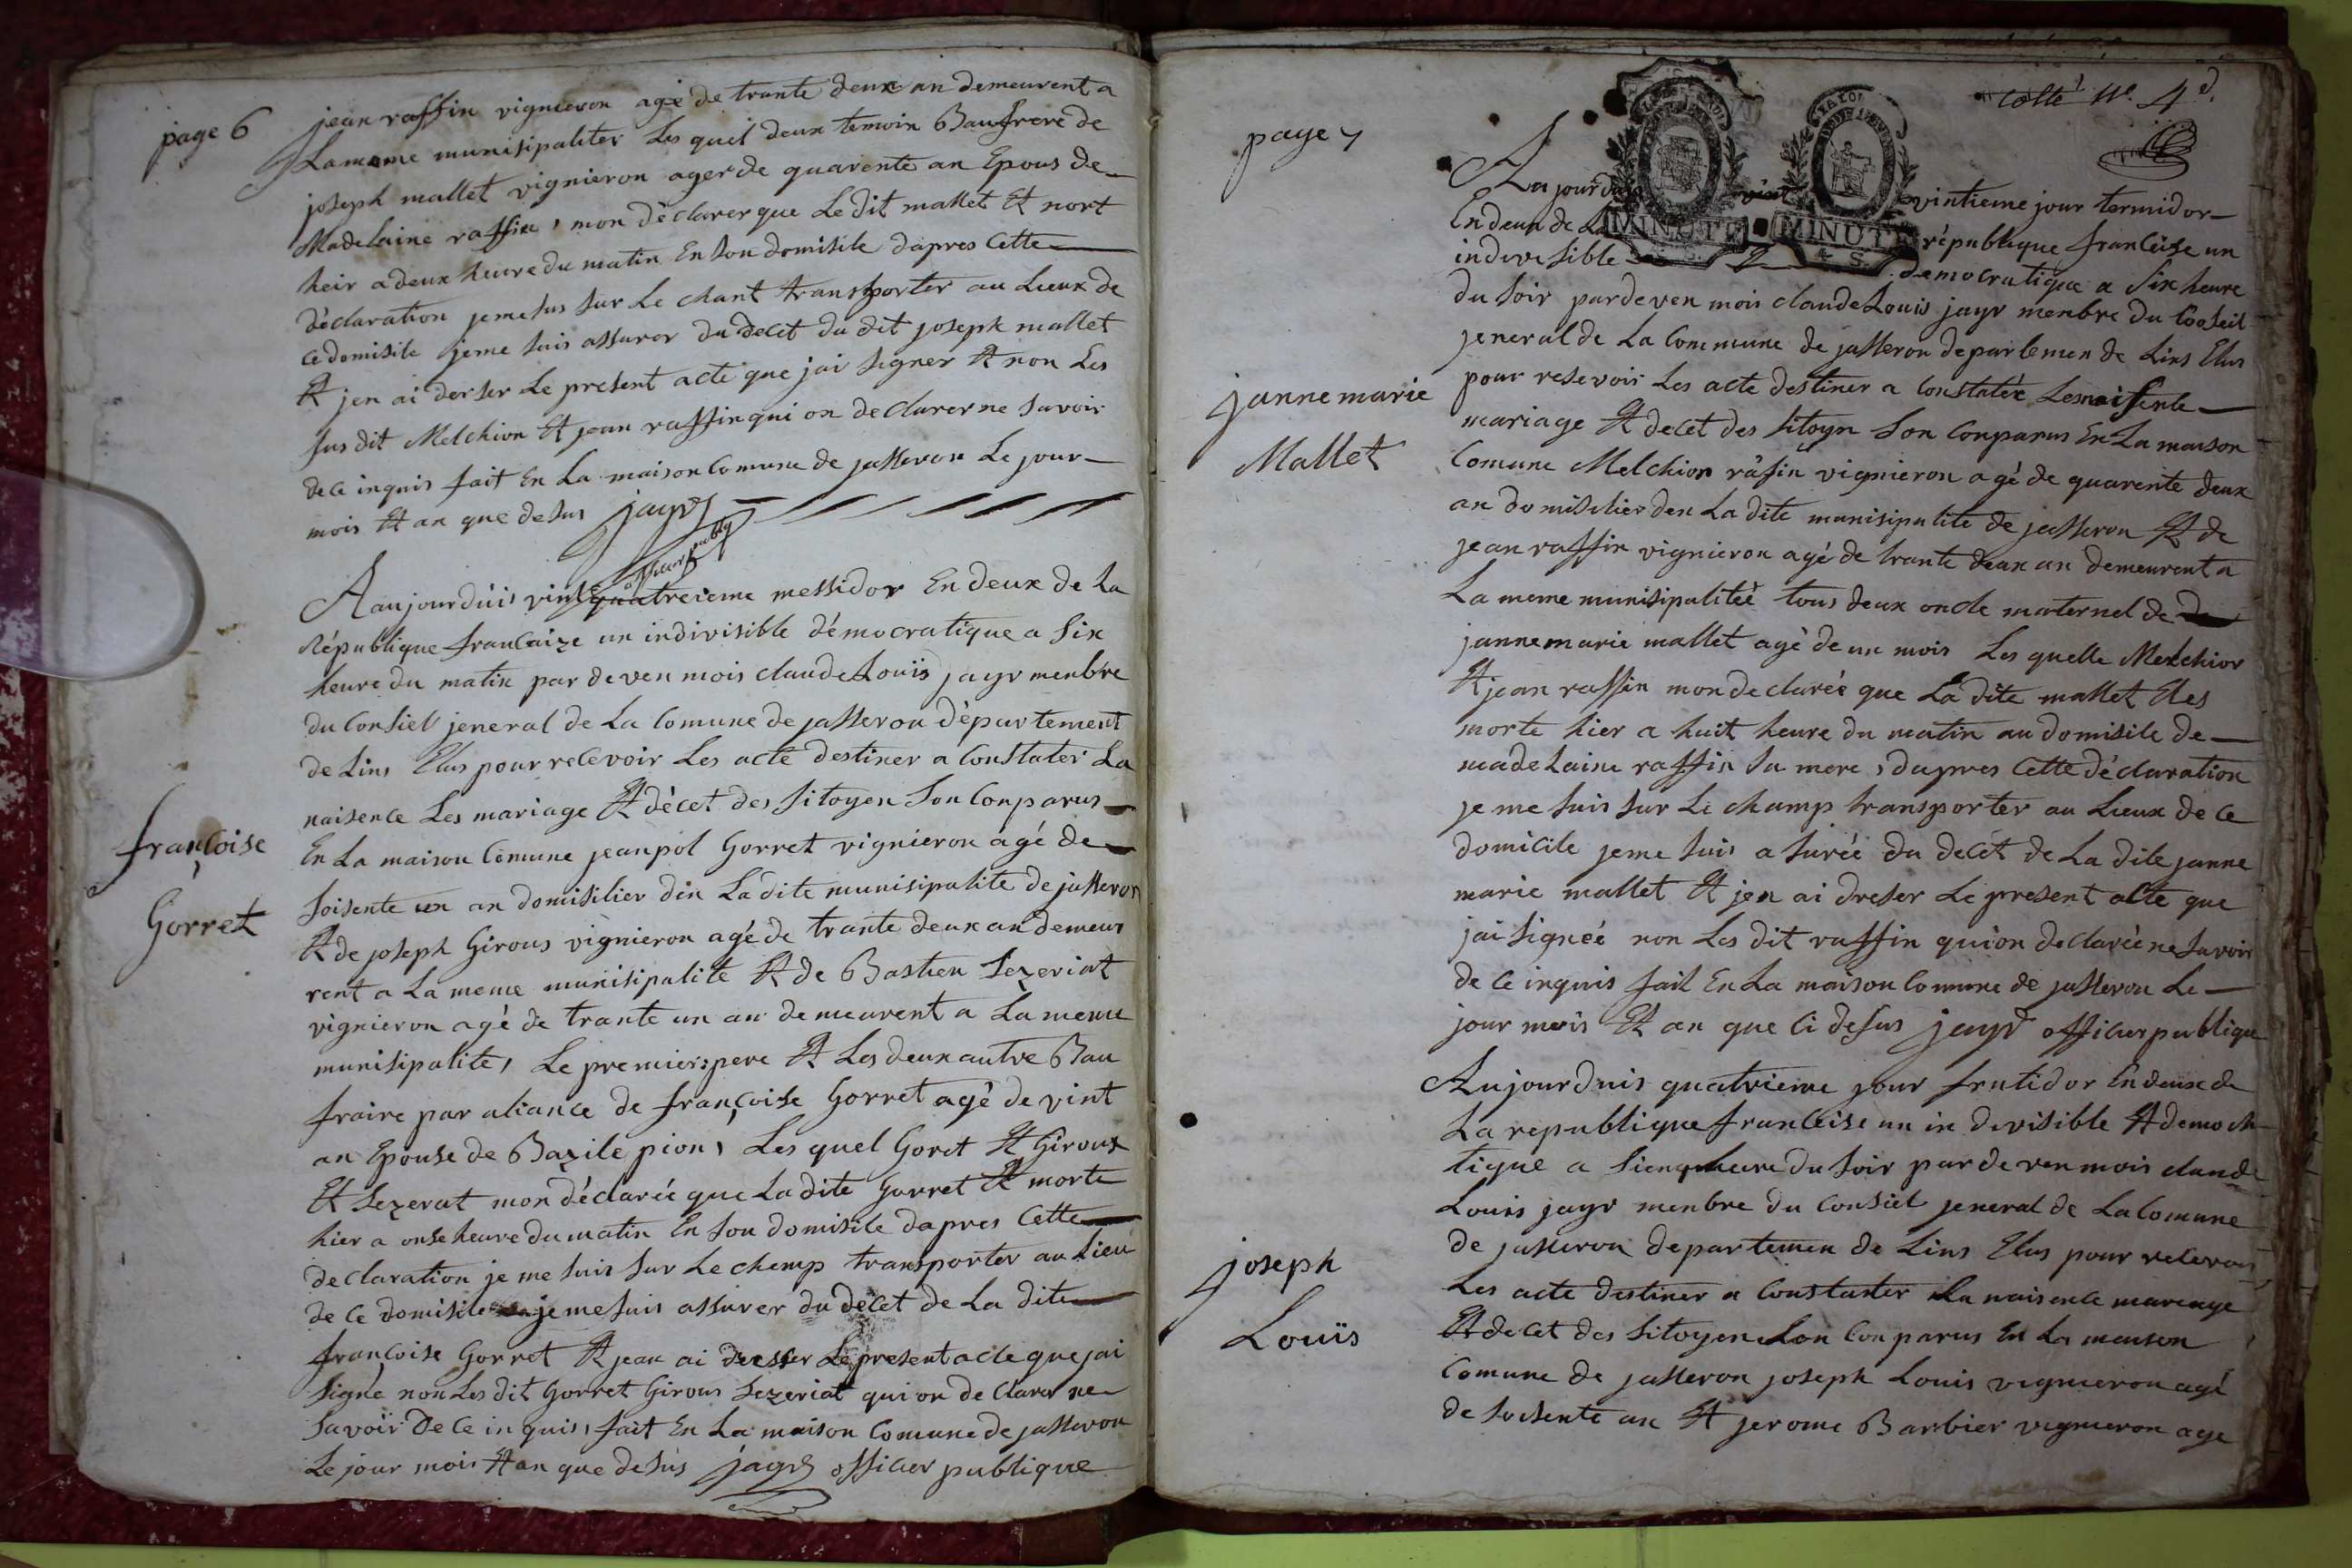 page 6
jean raffin vignieron agé de trante deux an demeurent a
La meme munisipaliter Les quel deux temoin Baufrere de
joseph mallet vignieron ager de quarente an Epous de
Madelaine raffin, mon déclarer que Le dit mallet Et mort
heir a deux heure du matin En son domisile dapres Cette
déclaration je me sus sur Le chant transporter au Lieux de
ce domisile je me suis assurer du decet du dit joseph mallet
Et jen ai derser Le present acte que jai signer Et non Les
sus dit Melchion Et jean raffin qui on declarer ne savoir
de ce inquis fait En La maison Comune de jasseron Le jour
mois Et an que desus jayr
officier publiq
Aaujourduis vint quatreieme messidor En deux de La
République francaize un indivisible démocratique a six
heure du matin par deven mois claude Louis jayr menbre
du Consiel jeneral de La Comune de jasseron département
de Lins Elus pour recevoir Les acte destiner a Constater La
naisence Les mariage Et décet des sitoyen son Conparus
En La maison Comune jeanpol Gorret vignieron agé de
soisente un an domisilier din La dite munisipalite de jasseron
Et de joseph Girous vignieron agé de trante deux an demeu
rent a La meme munisipalite Et de Bastien sezeriat
vignieron agé de trante un an demeurent a La meme
munisipalite, Le premier pere Et Les deux autre Bau
fraire par aliance de françoise Gorret agé de vint
an Epouse de Bazile pion, Les quel Goret Et Giroux
Et sezerat mon déclarée que La dite Gorret Et morte
hier a onse heure du matin En son domisile dapres Cette
declaration je me suis sur Le chemp transporter au Lieu
de ce domisile je me suis assurer du decet de La dite
françoise Gorret Et jean ai dresser Le present acte que jai
signé non Les dit Gorret Girous sezeriat qui on declarer ne
savoir de ce inquis, fait En La maison Comune de jasseron
Le jour mois Et an que desus jayr officier publique
françoise
Gorret
page 7
Cotté Ne. 4 d.
MINUTE MINUTE
4 S.
Au jourduis vint vintieme jour termidor
En deux de La république francèise un
indivesible democratique a six heure
du soir pardeven mois claude Louis jayr menbre du Cosseil
jeneral de La Commune de jasseron departemen de Lins Elus
pour resevoir Les acte destiner a Constatér Les naissente
mariage Et decet des sitoyn son Conparus En La maison
Comune Melchion râfin vignieron agé de quarente deux
an domisilier den La dite munisipalite de jasseron Et de
jean raffin vignieron agé de trante deux an demeurent a
La meme munisipalitée tous deux oncle maternel de
janne marie mallet agé de un mois Les quelle Melchior
Et jean raffin mon declarée que La dite mallet Eles
morte hier a huit heure du matin au domisile de
madelaine raffin sa mere, dapres Cette déclaration
je me suis sur Le champ transporter au Lieux de ce
domicile je me suis asurée du decét de La dite janne
marie mallet Et jen ai dreser Le present acte que
jai signéé non Les dit raffin qui on declarée ne savoir
de ce inquis fait En La maison Comune de jasseron Le
jour mois Et an que ci desus jayr officier publique
janne marie
Mallet
Aujourduis quatrieme jour frutidor En deux de
La republique franceise un in divisible Et democra
tique a sienq heure du soir par deven mois claude
Louis jayr menbre du Consiel jeneral de La Comune
de jasseron departemen de Lins Elus pour recevoir
Les acte destiner a Constaster La naisence mareage
Et decet des sitoyen son Conparus En La meuson
Comune de jasseron joseph Louis vignieron agé
de soisente an Et jerome Barbier vignieron age
joseph
Louïs